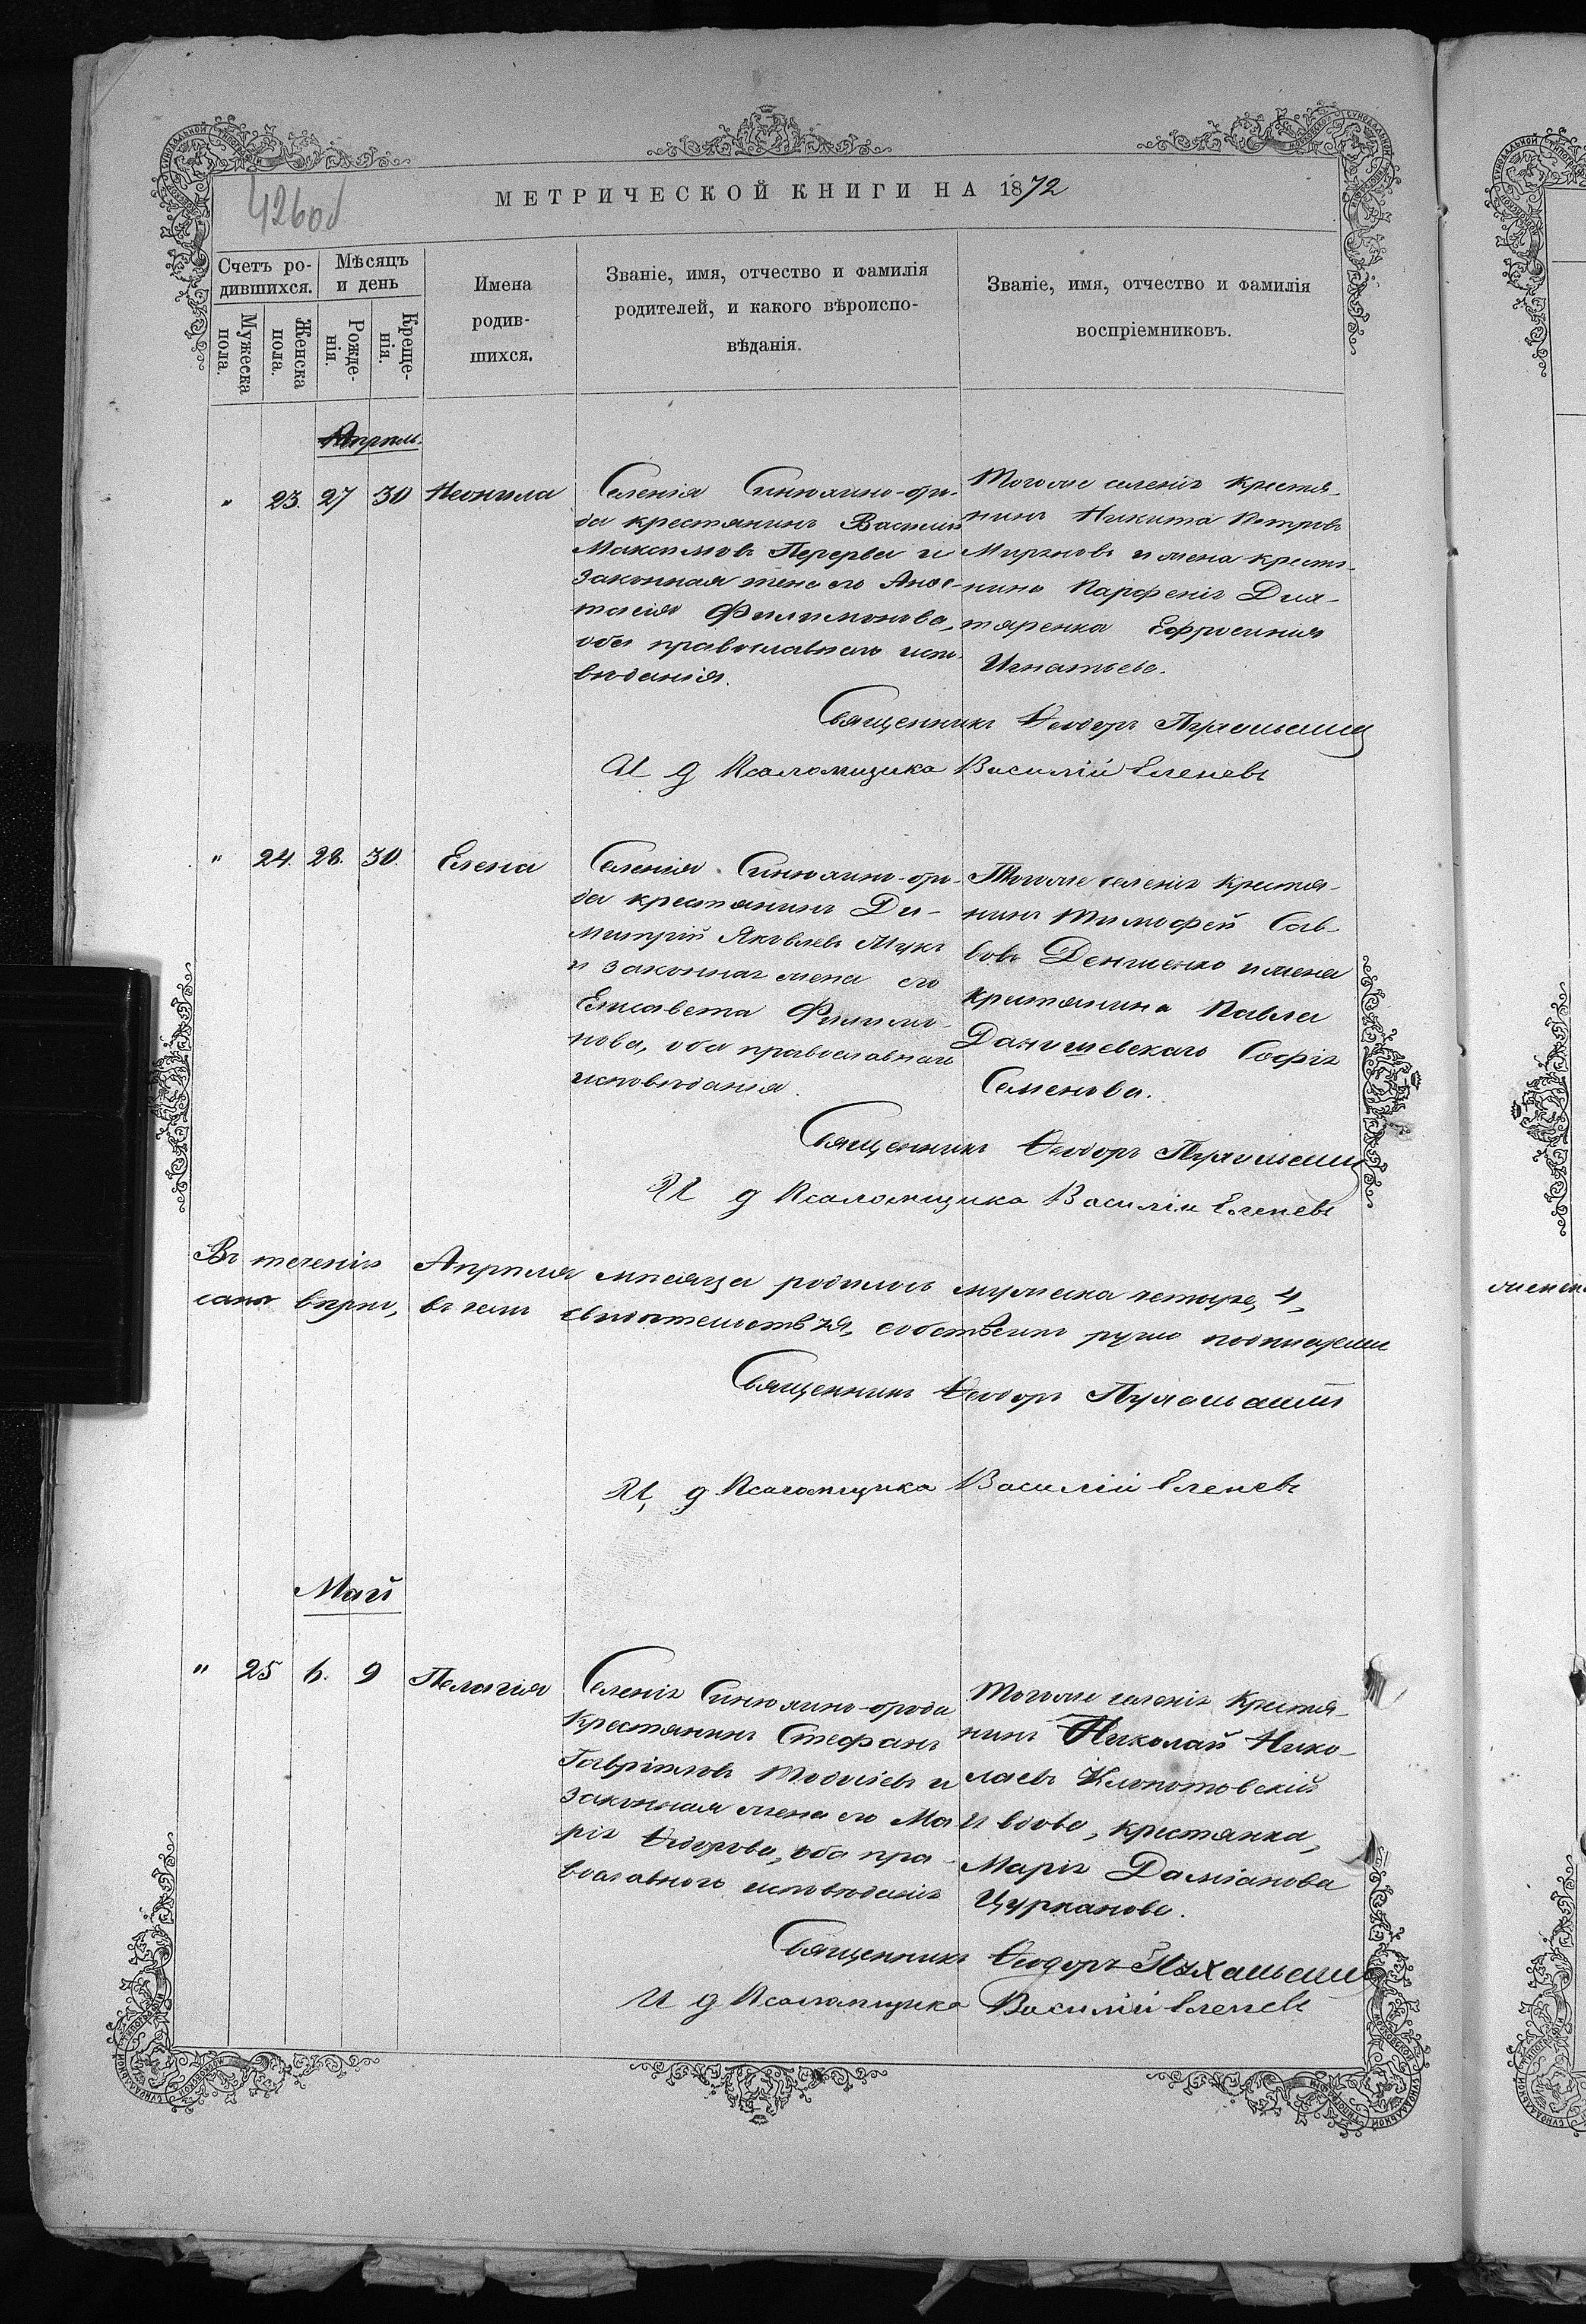 426об
МЕТРИЧЕСКОЙ КНИГИ НА 1872
Счетъ ро-
дившихся.
Мѣсяцъ
и день
Имена
родив-
шихся.
Званіе, имя, отчество и фамилія
родителей, и какого вѣроиспо-
вѣданія.
Званіе, имя, отчество и фамилія
воспріемниковъ.
Мужеска
пола.
Женска
пола.
Рожде-
нія.
Креще-
нія.
Апрѣль.
" 23. 27 30 Неонила
Селенія Синюхино-бро-
да крестянинъ Василій
Максимовъ Перерва и
законная жена его Анас-
тасія Филимонова,
оба православнаго испо-
вѣданія.
Тогоже селенія крестя-
нинъ Никита Петровъ
и жена крестя-
нина Парфенія Дег-
таренка Ефросинія
Игнатьева.
Священникъ Ѳеодоръ
И д Псаломщика Василій Еленевъ
" 24. 28. 30. Елена
Селенія Синюхино-бро-
да крестянинъ Ди-
митрій Яковлевъ Жукъ
и законная жена его
Елисавета Филимо-
нова, оба православнаго
исповѣданія.
Тогоже селенія крестя-
нинъ Тимофей Сав-
вовъ и жена
крестянина Павла
Данишевскаго Софія
Семенова.
Священникъ Ѳеодоръ
И д Псаломщика Василій Еленевъ
Въ теченіи Апрѣля мѣсяца родилось мужеска четыре, 4,
вѣрно, въ чемъ собственно ручно
Священникъ Ѳеодоръ
И д Псаломщика Василій Еленевъ
Май
" 25 6. 9 Пелагія
Селенія Синюхино-брода
Крестянинъ Стефанъ
Гавріиловъ и
законная жена его Ма-
рія Ѳедорова, оба пра-
вославнаго исповѣданія
Тогоже селенія Крестя-
нинъ Николай Нико-
лаевъ Клопотовскій
и вдова, крестянка,
Марія Даміанова
Цурканова.
Священникъ Ѳеодоръ
И д Псаломщика Василій Еленевъ